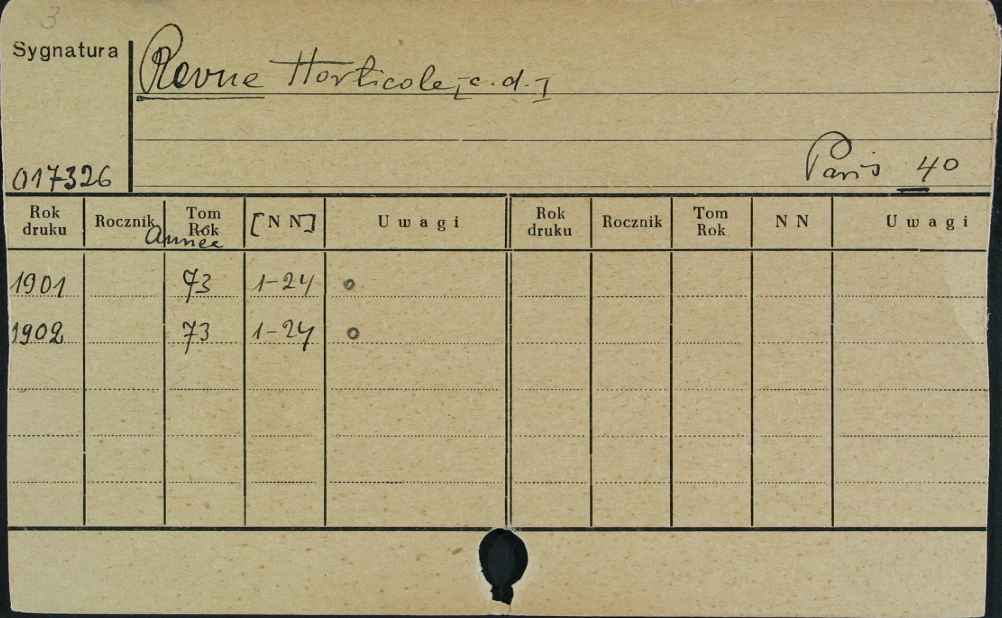 3
Sygnatura
Revue Horticole [c.d.]
017326
Paris 40
Rok druku Rocznik Tom Rok Année [N N] Uwagi Rok druku Rocznik Tom Rok N N Uwagi
1901 73 1-24
1902 73 1-24